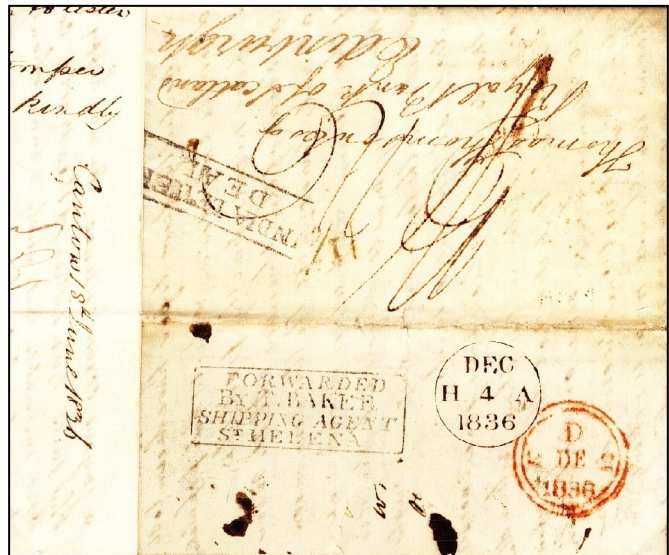 kindly
Canton 18th June 1836
Thomas Thomson Esq
Royal Bank of Scotland
Edinburgh
INDIA LETTER
DEAL
FORWARDED
BY T. BAKER
SHIPPING AGENT
ST HELENA
DEC
H 4 A
1836
D
2 DE 2
1836